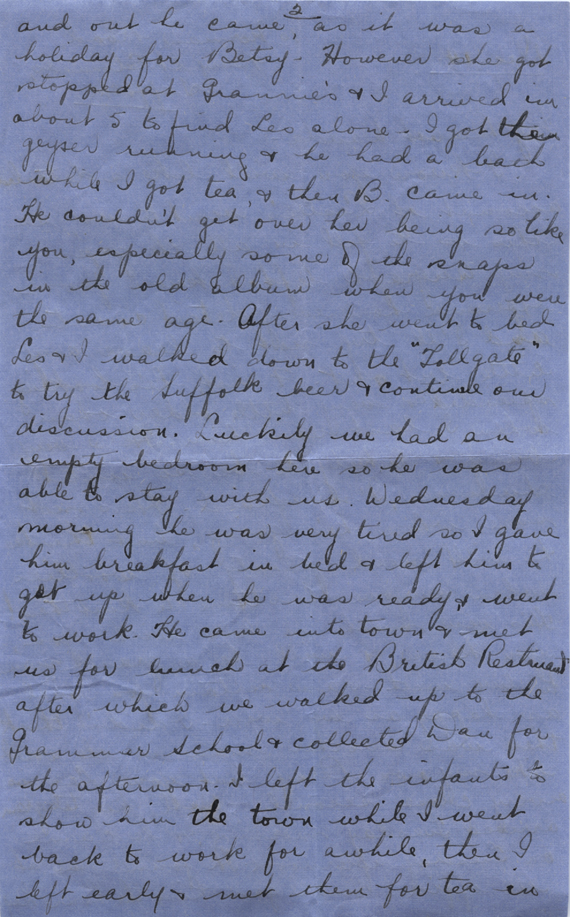 2
and out he came, as it was a
holiday for Betsy. However she got
stopped at Grannie's & I arrived in
about 5 to find Les alone. I got then
geyser running & he had a bath
while I got tea, & then B. came in.
He couldn't get over her being so like
you, especially some of the snaps
in the old album when you were
the same age. After she went to bed
Les & I walked down to the "Tollgate"
to try the Suffolk beer & continue our
discussion. Luckily we had an
empty bedroom here so he was
able to stay with us. Wednesday
morning he was very tired so I gave
him breakfast in bed & left him to
get up when he was ready, & went
to work. He came into town & met
us for lunch at the British Restaurant
after which we walked up to the
Grammar School & collected Dan for
the afternoon. I left the infants to
show him the town while I went
back to work for awhile, then I
left early & met them for tea in